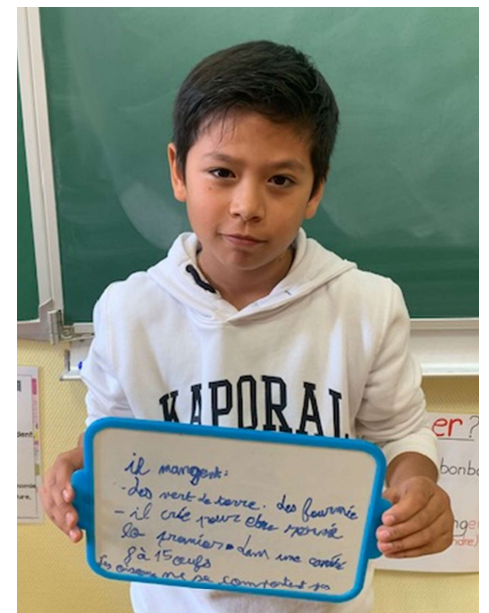 KAPORAL
il mangent:
-des vert de terre. des fourmie
- il crie pour etre
le premier. dans une
8 à 15 œufs
Les oiseaux ne se comportent pas
er?
bonbo